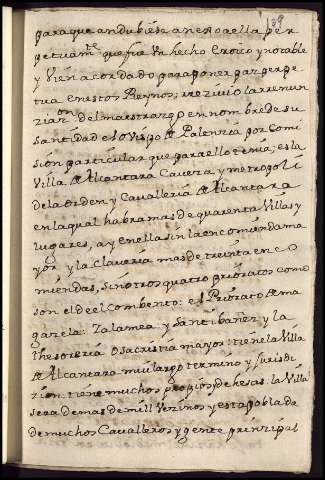 139
para que andubiese anexo a ella per
petuamte que fue Un hecho Eroico y notable
y Vien acordado para poner paz perpe
tua en estos Reynos; rezivio la renun
ziazon del maestrazgo en nombre de su
Santidad el oVispo de Palenzia por Comi
sion particular que para ello tenia; es la
Villa de Alcantara Caveza y metropoli
de la orden y Cavalleria de Alcantara
en la qual habra mas de quarenta Villas y
lugares, ay en ella sin la encomienda ma
yor y la Claveria mas de treinta enco
miendas, sino tros quatro prioratos como
son el de el Combento: el Priorato de ma
gazela: Zalamea y Santibañez y la
thesoreria o sacristia mayor: tiene la Villa
de Alcantara mui largo termino y Jurisdi
zion. tiene muchos propios de hesas: la Villa
sera de mas de mill Vezinos y esta poblada
de muchos Cavalleros y gente prinzipal